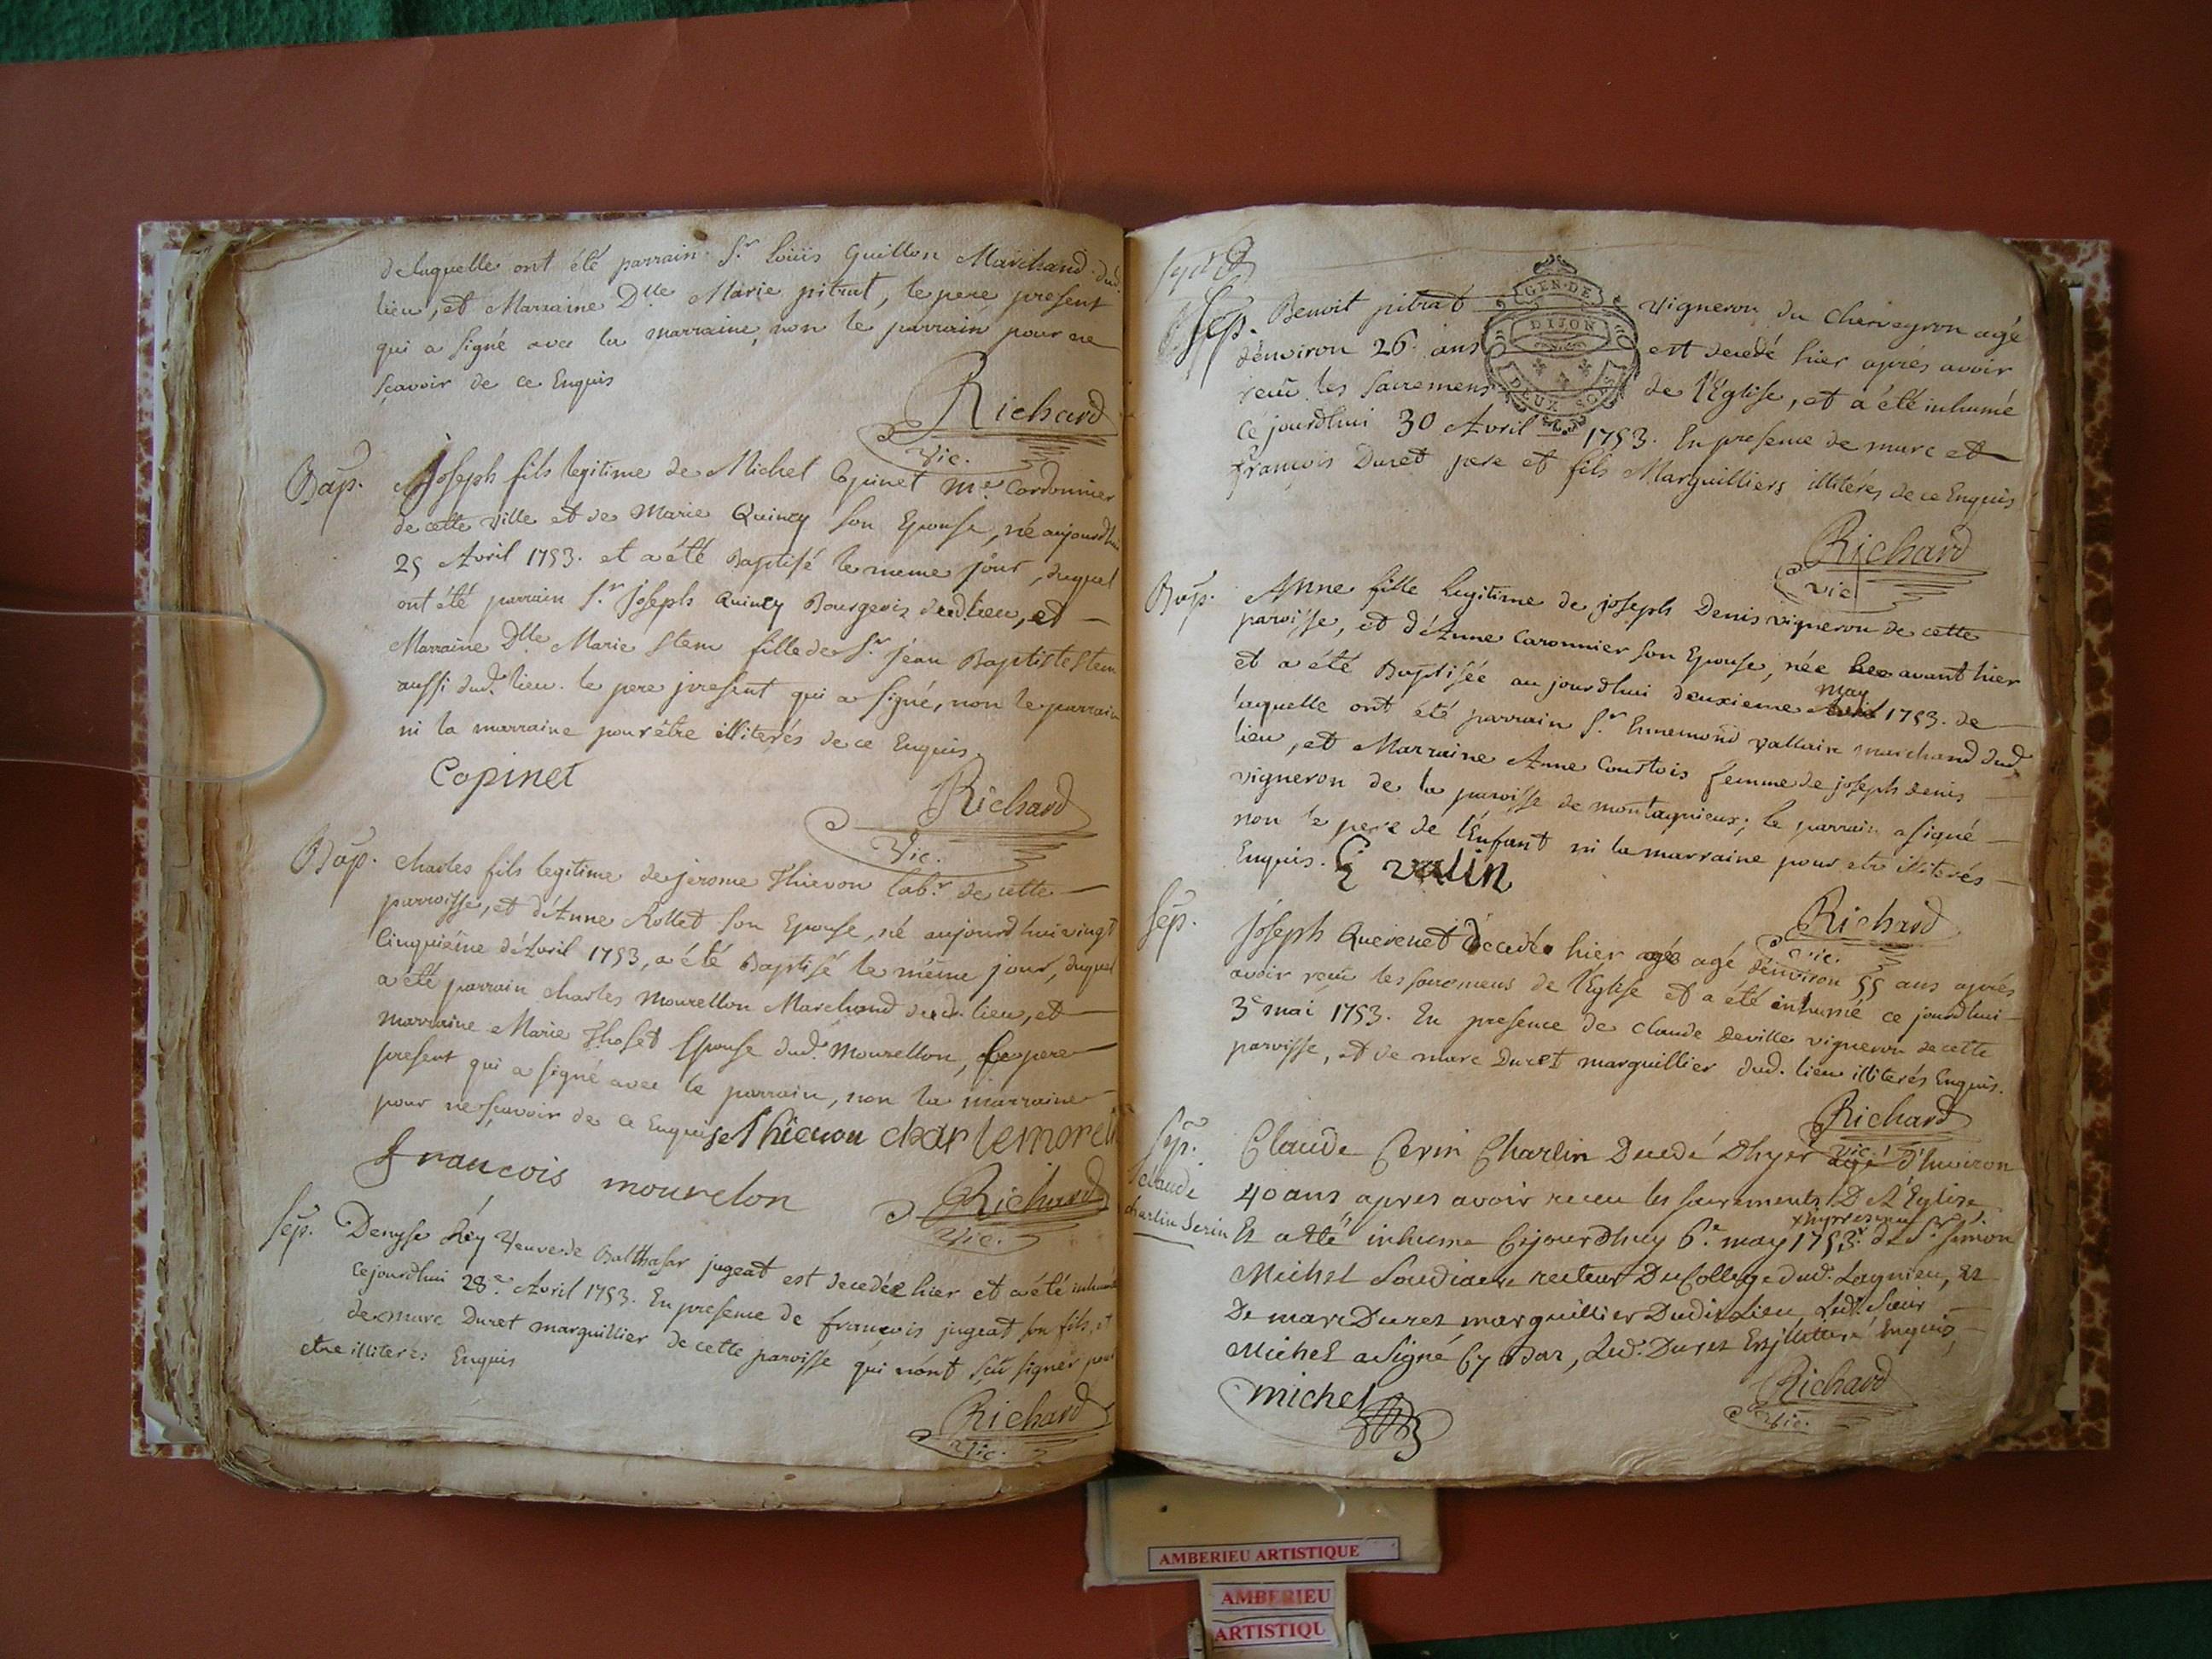 delaquelle ont été parrain Sr. Loüis Guillon Marchand dud.
lieu, et Marraine Dlle Marie pitrat, le pere present
qui a signé avec la marraine, non le parrain pour ne
sçavoir de ce Enquis
Richard
Vic.
Bap. Joseph fils legitime de Michel Copinet Me. Cordonnier
de cette ville et de Marie Quincy son Epouse, né aujourdhui
25 Avril 1753. et a été Baptisé le meme jour, duquel
ont été parrain Sr. Joseph Quincy Bourgeois dud. lieu, et
Marraine Dlle Marie Stem fille de Sr. jean Baptiste Stem
aussi dud. lieu. le pere present qui a signé, non le parrain
ni la marraine pour être illiterés de ce Enquis
Copinet
Richard
Vic.
Bap. Charles fils legitime de jerome Thievon labr. de cette
parroisse, et d'Anne Rollet son Epouse, né aujourd'hui vingt
Cinquième d'Avril 1753, a été Baptisé le même jour, duquel
a été parrain Charles Mourellon Marchand dud. lieu, et
marraine Marie Thoset Epouse dud. Mourellon, le pere
present qui a signé avec le parrain, non la marraine
pour ne sçavoir de ce Enquise Thievon
francois mourelon
Richard
Vic.
Sep. Denyse Rey Veuve de Balthasar jugeat est decedée hier et a été inhumée
Cejourdhui 28e. Avril 1753. En presense de françois jugeat son fils, et
de marc Duret marguillier de cette paroisse qui n'ont sçu signer pour
etre illiteres Enquis
Richard
Vic.
Sep. Benoit pitrat Vigneron du Cherveyron agé
GEN. DE
DIJON
DEUX SOLS
d'environ 26 ans est decedé hier après avoir
reçu les Sacremens de l'Eglise, et a été inhumé
Cejourdhui 30 Avril 1753. En presense de marc et
françois Duret pere et fils Marguilliers illiterés de ce Enquis
Richard
Vic.
Bap. Anne fille legitime de joseph Denis vigneron de cette
paroisse, et d'Anne Caronnier son Epouse, née avant hier
et a été Baptisée aujourdhui deuxieme may 1753. de
laquelle ont été parrain Sr. Ennemond Vallain marchand dud.
lieu, et Marraine Anne Courtois femme de joseph denis
vigneron de la paroisse de montagnieux; le parrain a signé
non le pere de l'Enfant ni la marraine pour etre illiterés
Enquis. E valin
Richard
Vic.
Sep. Joseph Querenet décedé hier agé d'environ 55 ans après
avoir reçu les sacremens de l'Eglise et a été inhumé ce jourdhui
3e mai 1753. En presense de claude Deville vigneron de cette
paroisse, et de marc Duret marguillier dud. lieu illiterés Enquis.
Richard
Vic.
Sep. Claude Serin Charlin Decedé d'hyer agé d'Environ
Claude
Charlin Serin
40 ans apres avoir receu les sacrements De L'Eglise
Et a été inhumé Cejourdhuy 6e. may 1753. de Sr. Simon
Michel recteur Du College dud. Lagnieu, et
De marc Duret marguillier Dudit Lieu, Led. Sieur
Michel a signé Cy bas, Led. Duret Enquis
michel
Richard
Vic.
AMBERIEU ARTISTIQUE
AMBERIEU
ARTISTIQU